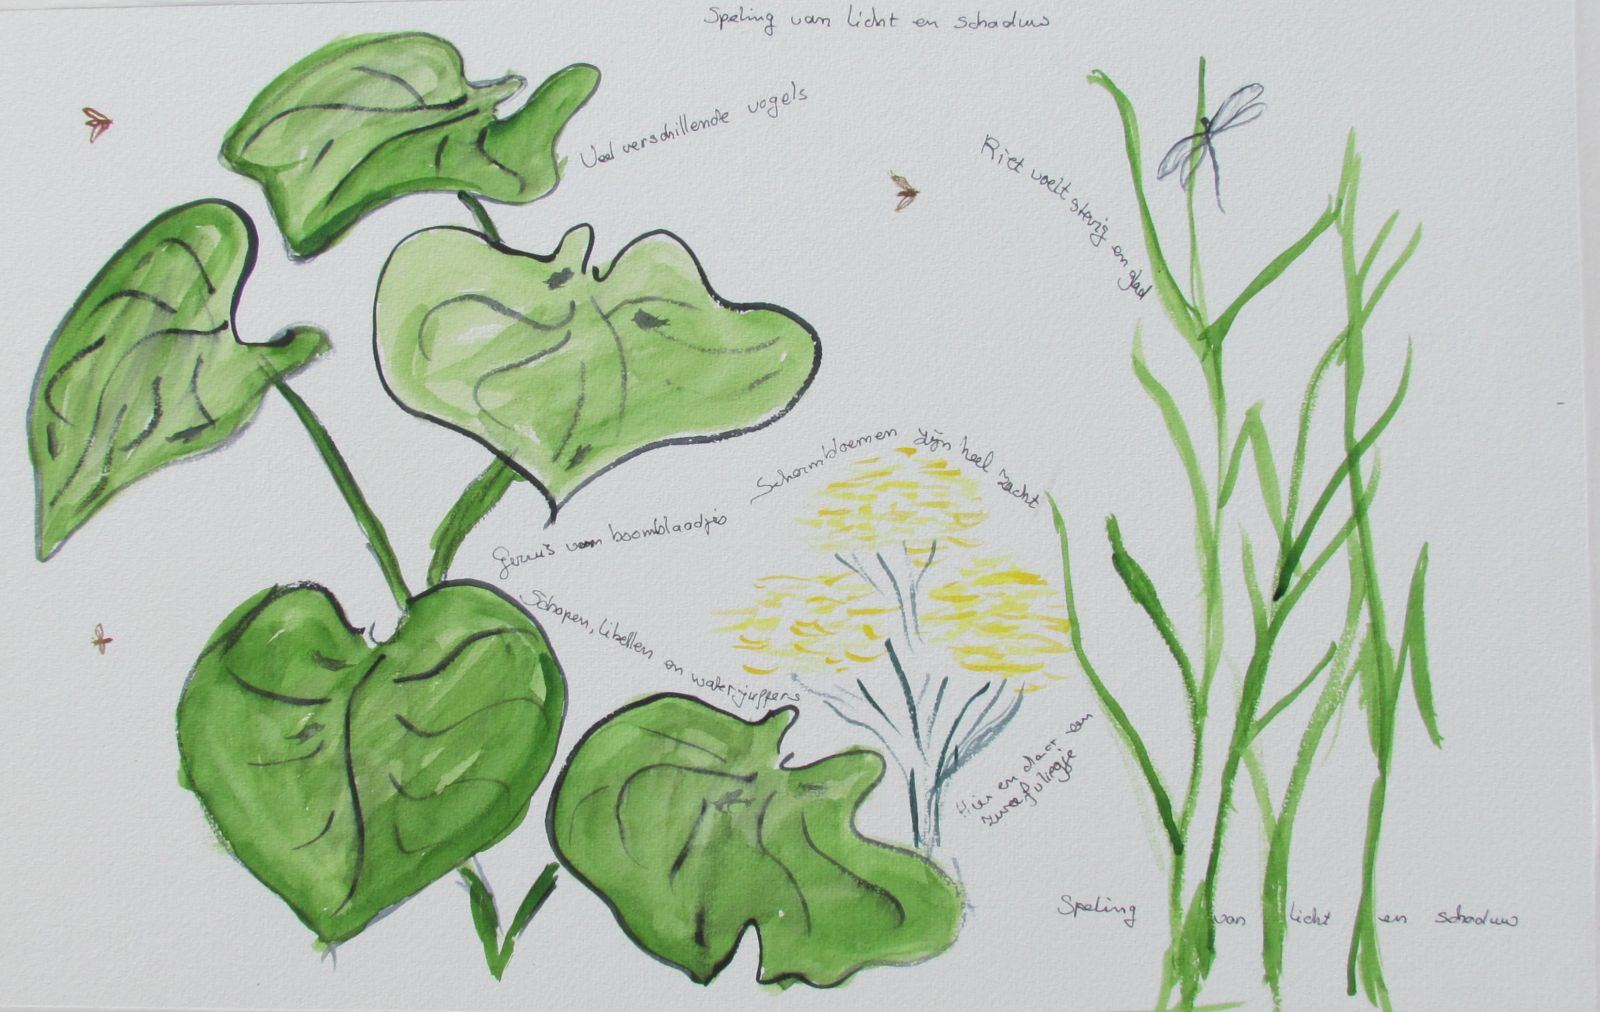 Speling van licht en schaduw
Veel verschillende vogels
Riet voelt stevig en glad
Schermbloemen zijn heel zacht
Geruis van boomblaadjes
Schapen, libellen en waterjuffers
Hier en daar een
zweefvliegje
Speling van licht en schaduw